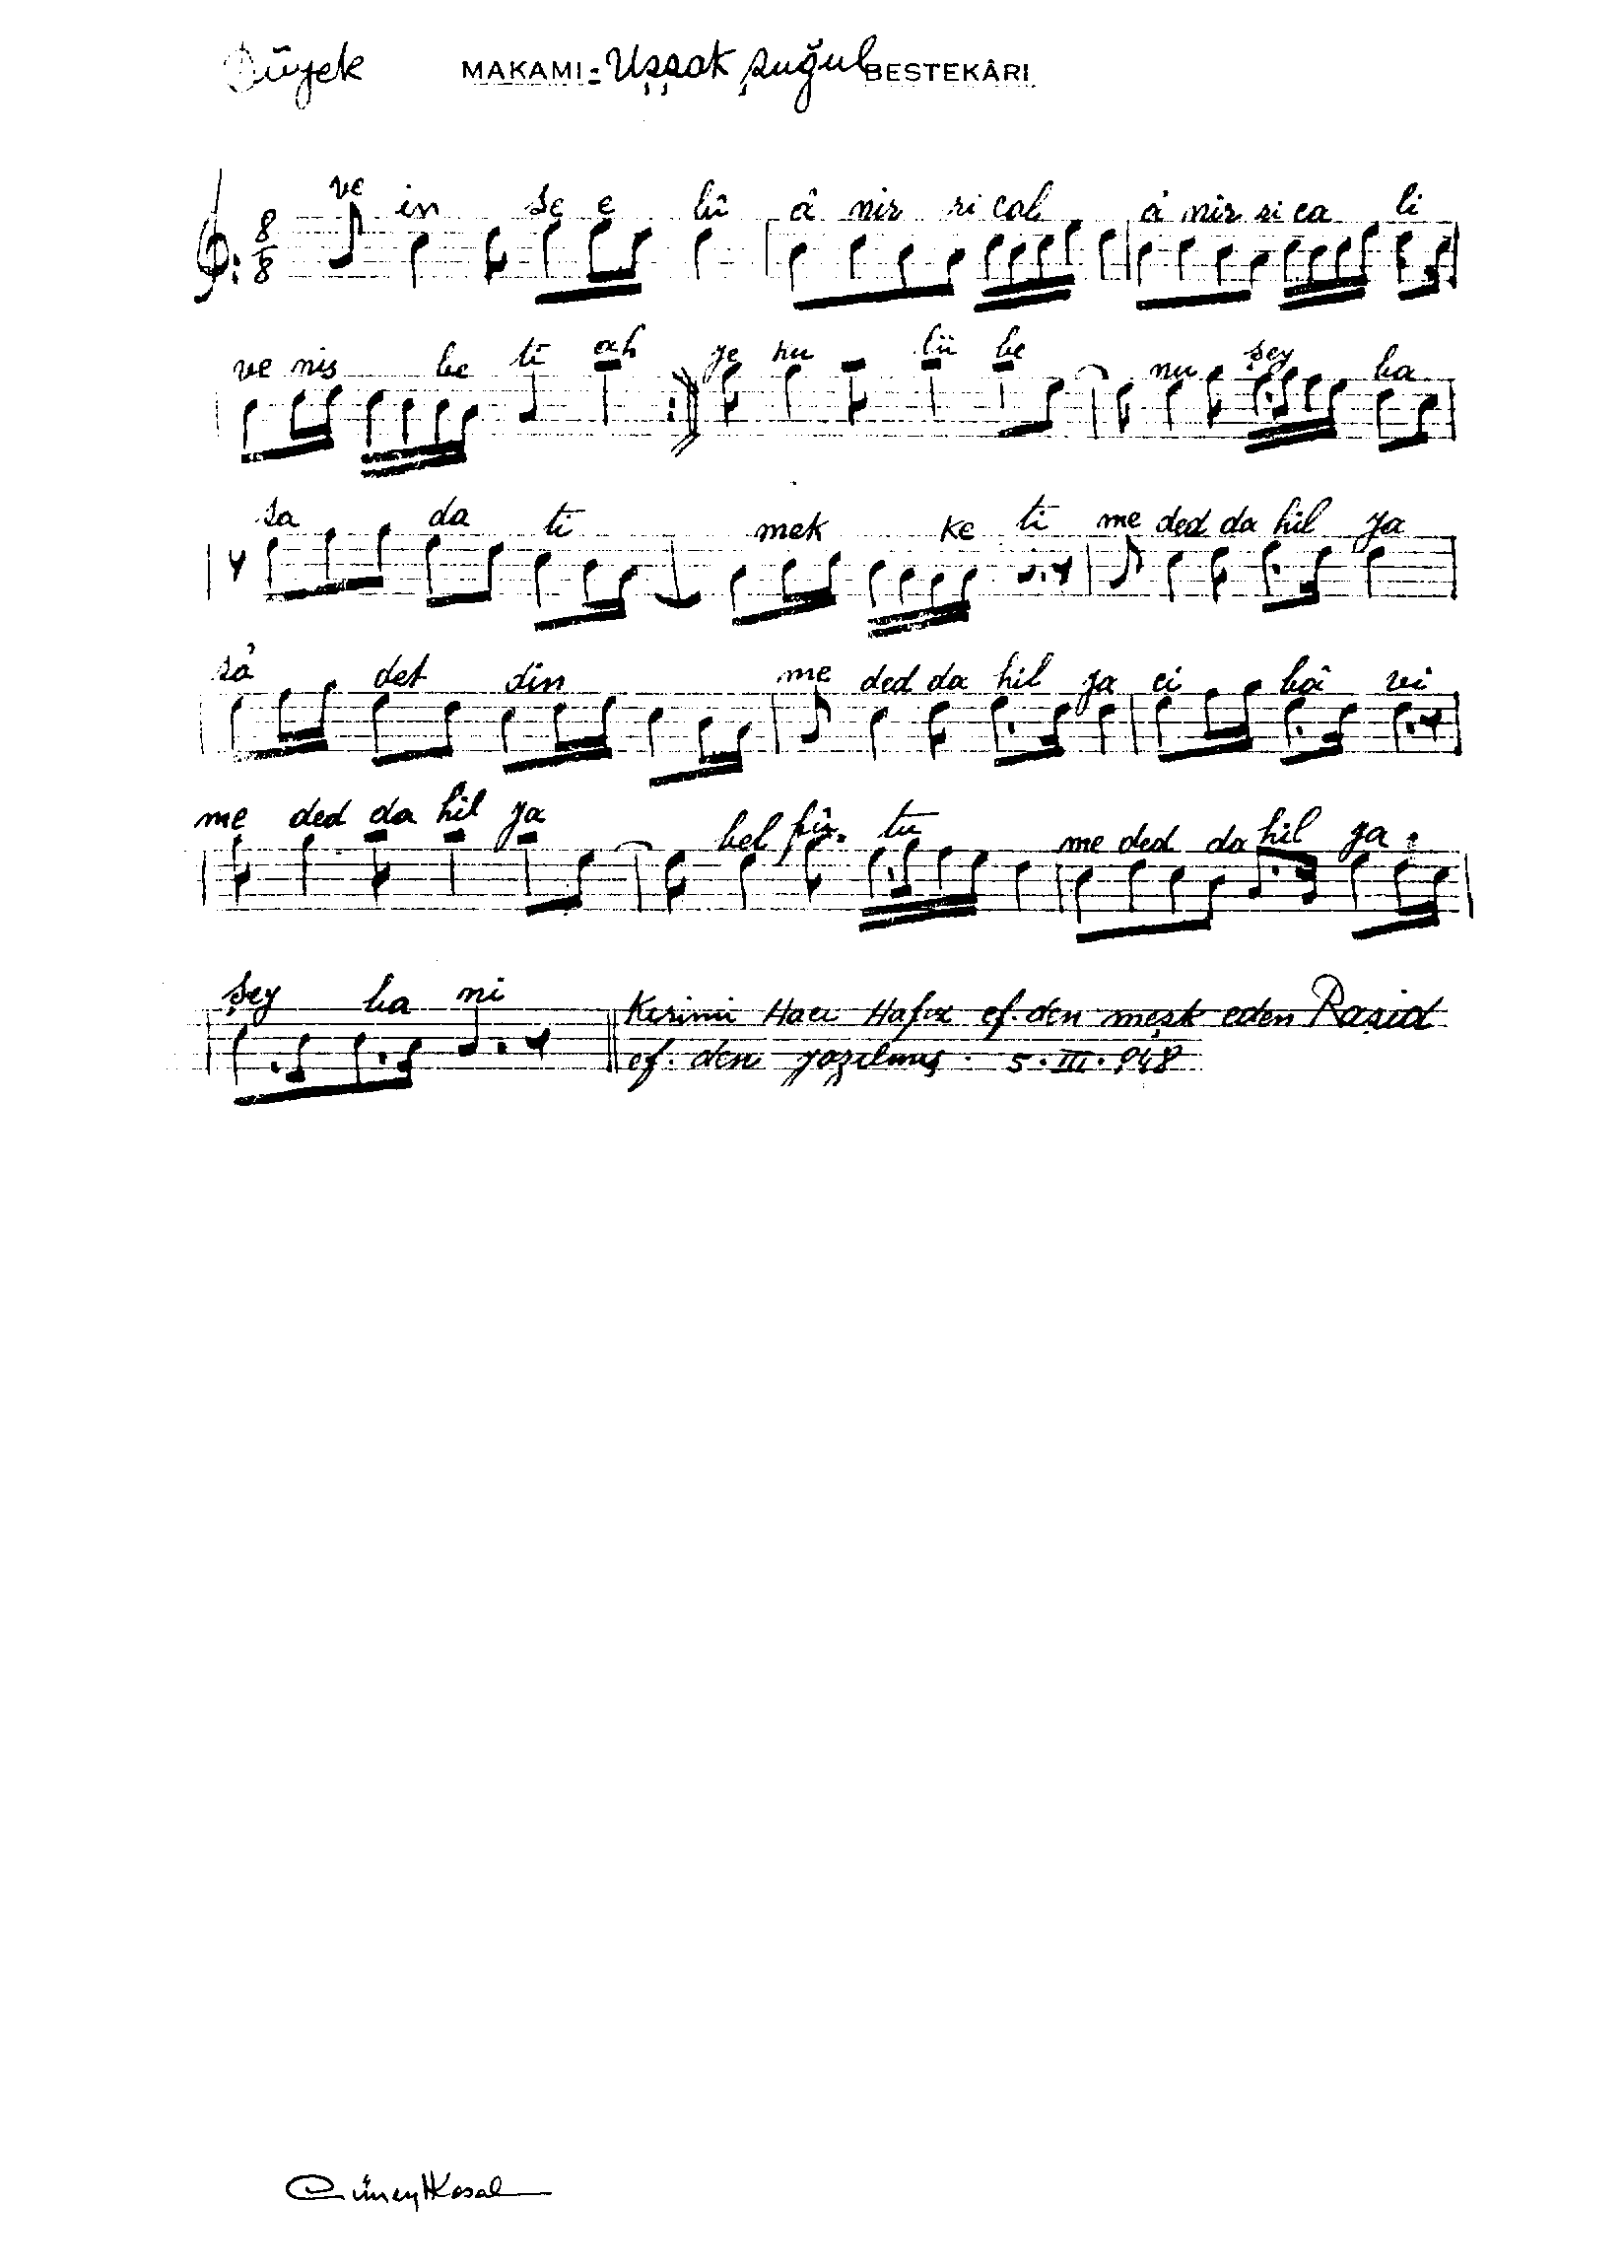 Düyek MAKAMI: Uşşak şuğul BESTEKÂRI
8 8
ve in se e lû â nir ri cal â nir ri ca li
ve nis be ti ah ye hu lü be nu şey ba
sa da ti mek ke ti me ded da hil ya
sâ det din me ded da hil ya ci bâ vi
me ded da hil ya bel tu me ded da hil ya
şey ba ni Kırimi Hacı Hafız ef. den meşk eden Raşid
ef. den yazılmış. 5.III.948
Cüneyd Kosal